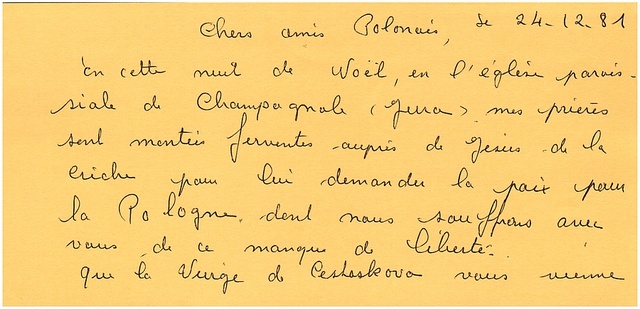 Chers amis Polonais, le 24-12-81
En cette nuit de Noël, en l'église parois-
siale de Champagnole (Jura) mes prières
sont montées ferventes auprès de Jésus de la
Crèche pour lui demander la paix pour
la Pologne, dont nous souffrons avec
vous de ce manque de liberté.
que la Vierge de Cestoskova vous vienne